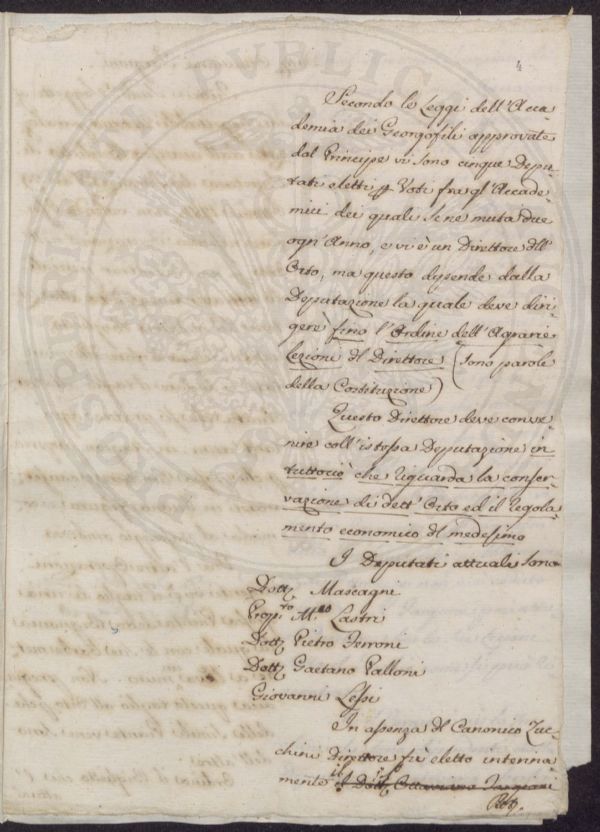 4
Secondo le Leggi dell'Acca-
demia dei Georgofili approvate
dal Principe vi sono cinque Depu-
tati eletti p Voti fra gl'Accade-
mici dei quali se ne muta due
ogn'Anno, e vi è un Direttore dll'
Orto, ma questo dipende dalla
Deputazione la quale deve diri-
gere fino l'Ordine dell'Agrarie
lezioni dl Direttore (sono parole
della Costituzione)
Questo Direttore deve conve-
nire coll'istessa Deputazione in
tuttociò che riguarda la conser-
vazione di dett'Orto ed il regola-
mento economico dl medesimo
I Deputati attuali sono
Dott. Mascagni
Prop.to M.co Lastri
Dott. Pietro Ferroni
Dott. Gaetano Palloni
Giovanni Lessi
In assenza dl Canonico Zuc-
chini Direttore fù eletto interina-
mente il Dott. Ottaviano Targioni
PUBLIC